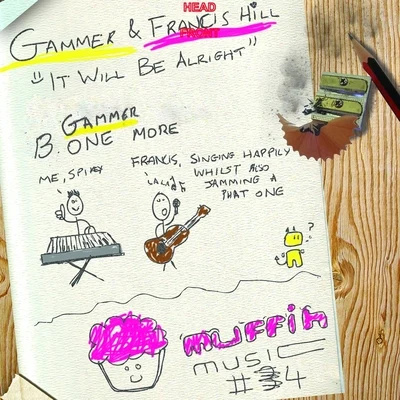 HEAD
FRONT
GAMMER & FRANCIS HILL
"IT WILL BE ALRIGHT"
GAMMER
B. ONE MORE
ME,
FRANCIS, SINGING HAPPILY
WHILST ALSO
JAMMING A
PHAT ONE
LALALA
?
muffin
MUSIC
#34